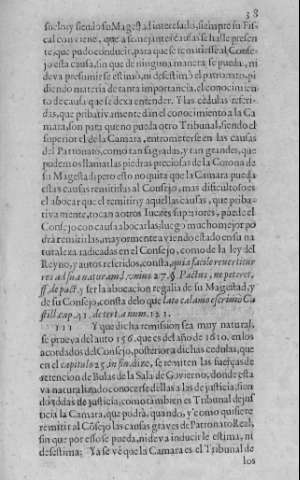 38
suelo; y siendo su Magestad interesado, siempre su Fis-
cal conviene, que a semejantes causas se halle presen-
te, que pudo conducir, para que se remitiesse al Conse-
jo esta causa, sin que de ninguna manera, se pueda, ni
deva presumir se estimò, ni desestimò el patronato, pi
diendo materia de tanta importancia, el conocimien-
to de causa que se dexa entender. Y las cedulas referi-
das, que pribativamente dan el conocimiento a la Ca
mara, son para que no pueda otro Tribunal, siendo el
superior el de la Camara, entrometerse en las causas
del Patronato, como tan sagradas, y tan grandes, que
podemos llamarlas piedras preciosas de la Corona de
su Magestad: pero esto no quita que la Camara pueda
estas causas remitirlas al Consejo, mas dificultoso es
el abocar que el remitir, y aquellas causas, que priba-
tivamente tocan a otros Iuezes superiores, puede el
Consejo con causa abocarlas, luego mucho mejor po
drà remitirlas, mayormente aviendo estado en su na
turaleza radicadas en el Consejo, como de la ley del
Reyno, y autos referidos, consta, quia facile revertitur
res ad sua naturam, l. unius 27. §. Pactus, ne peteret,
ff. de pact. y ser la abocacion regalia de su Magestad, y
de su Consejo, consta de lo que lato calamo escrimiò Ca
still. cap. 41. de tert. a num. 121.
111 Y que dicha remission sea muy natural,
se prueva del auto 156. que es del año de 1610. en los
acordados del Consejo, posterior a dichas cedulas, que
en el capitulo 25. in fin. dize, se remiten las fuerças de
retencion de Bulas de la Sala de Govierno, donde esta
va naturalizado conocerse dellas a las de justicia, sien
do todas de justicia, como tambien es Tribunal de jus
ticia la Camara, que podrà, quando, y como quisiere
remitir al Cõsejo las causas graves de Patronato Real,
sin que por esso se pueda, ni deva inducirle estima, ni
desestima; Ya se vè que la Camara es el Tribunal de
los